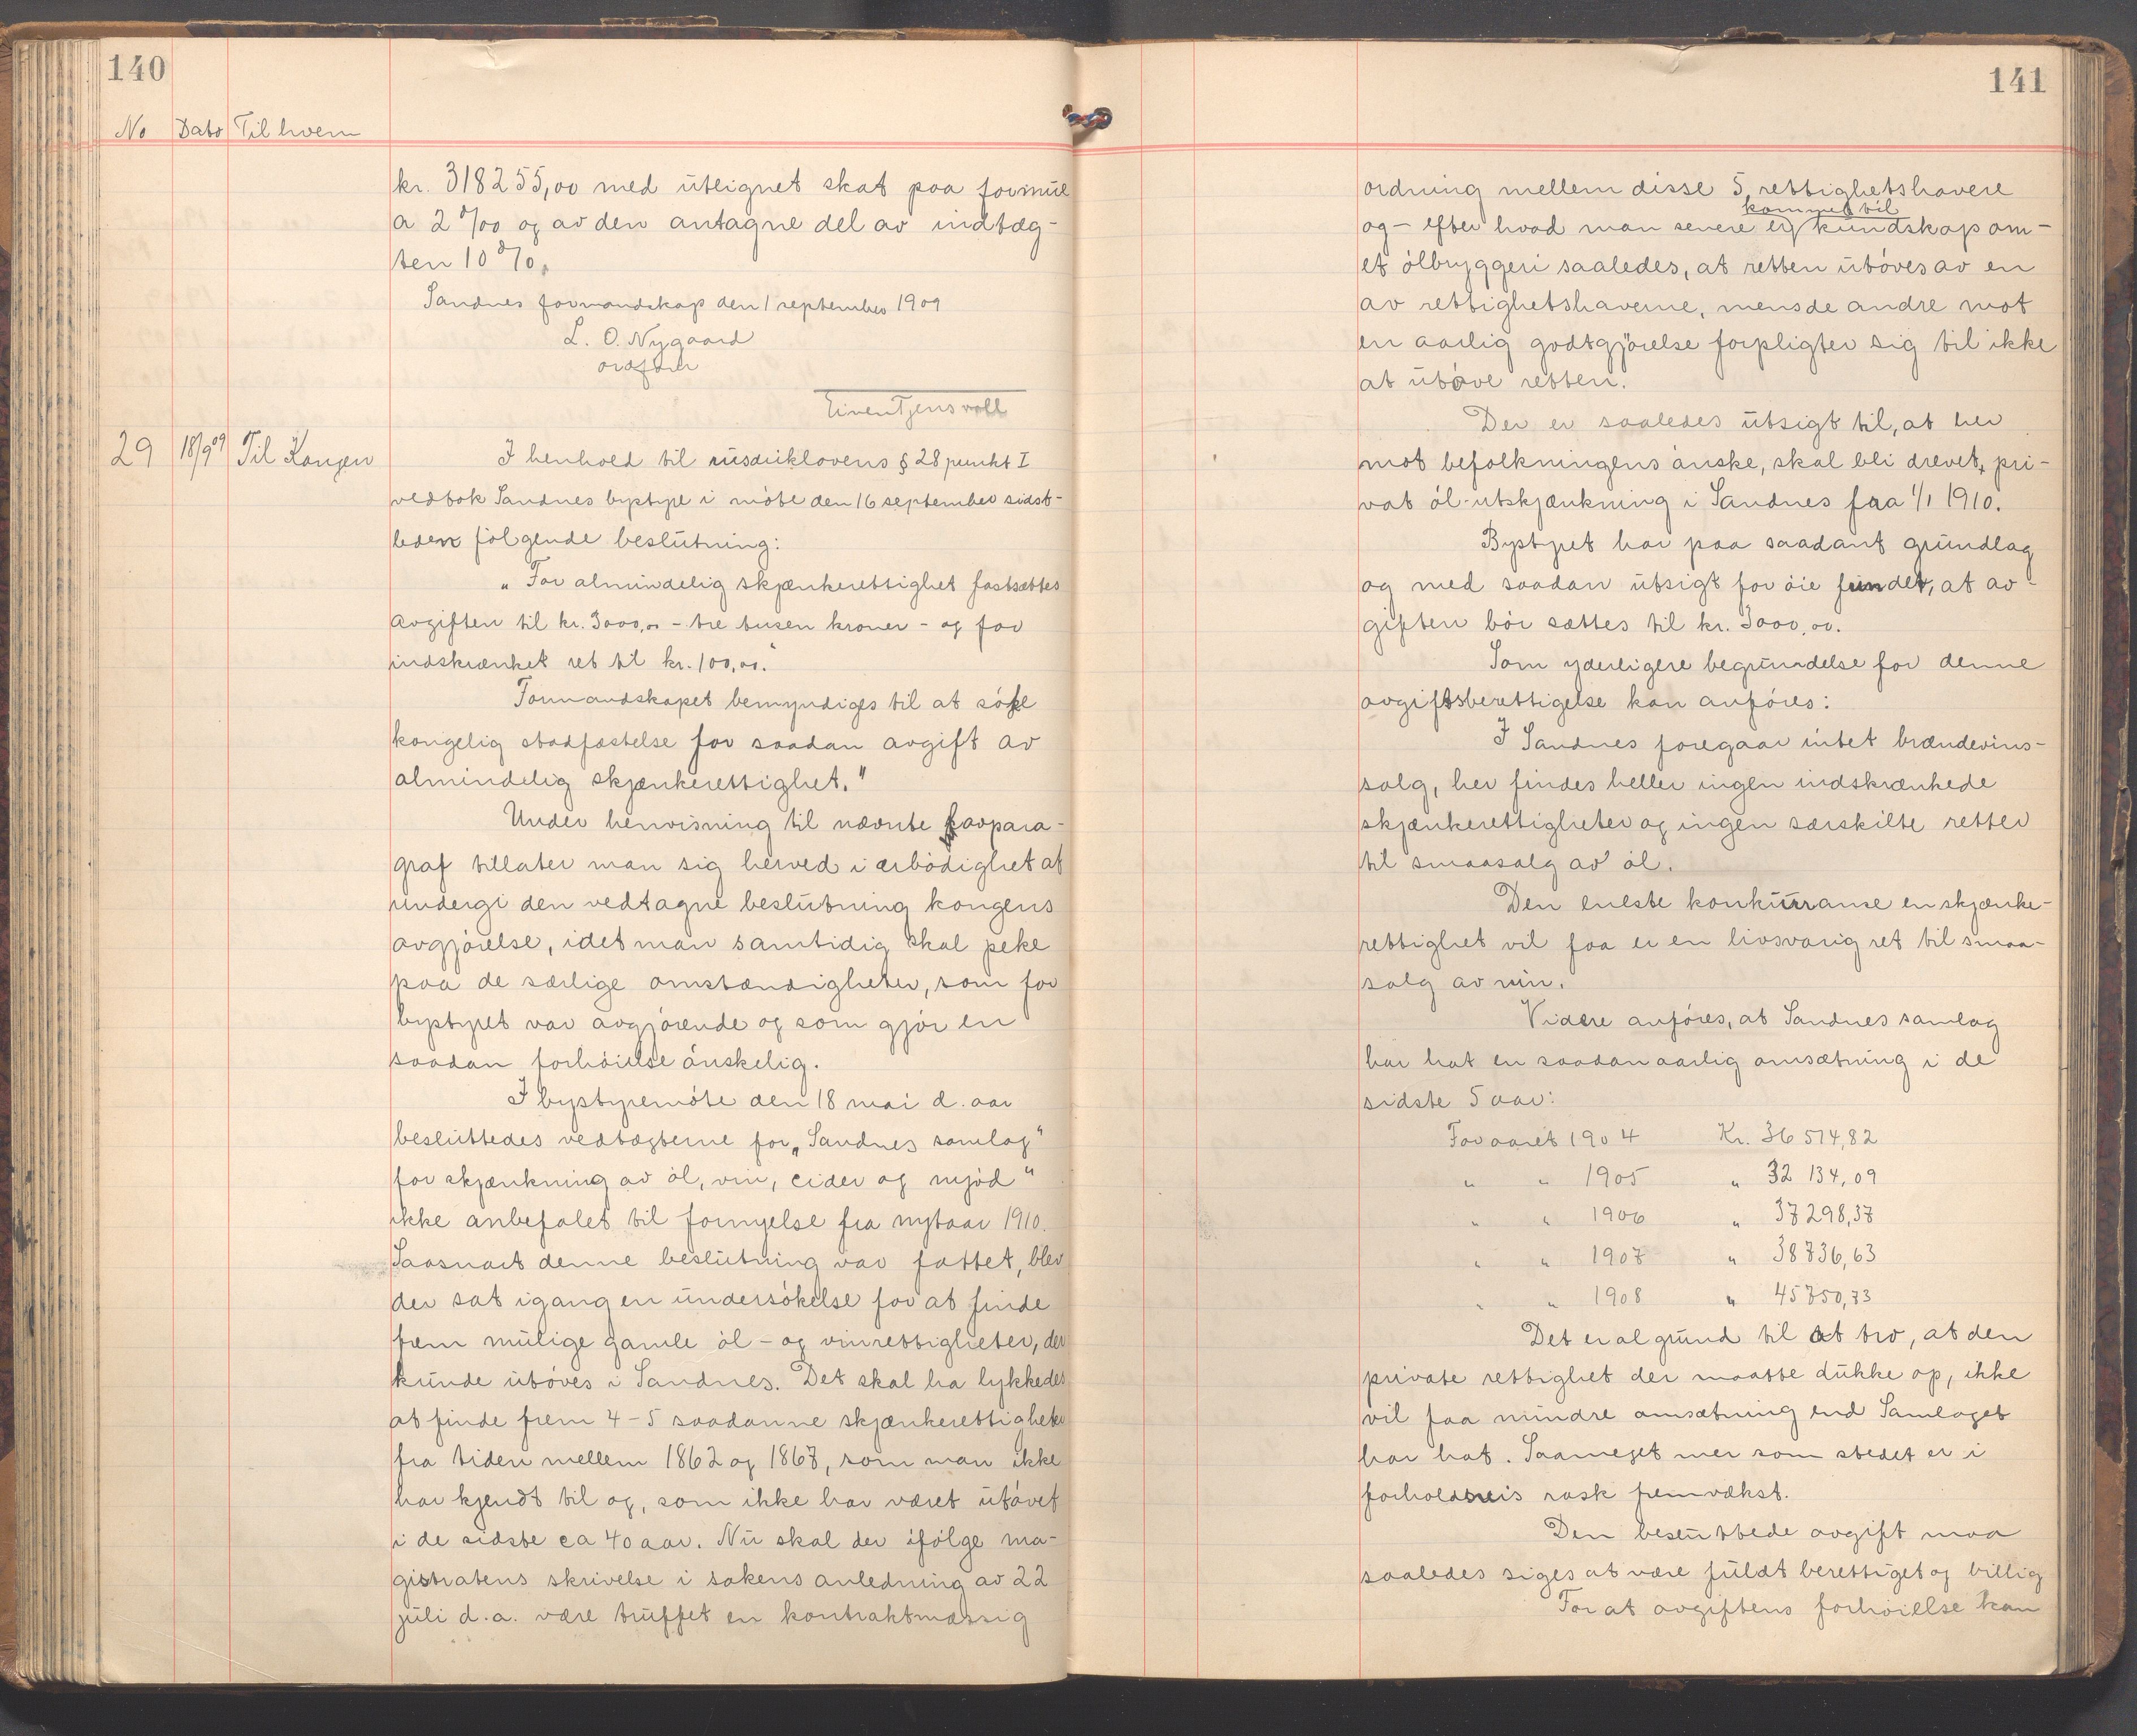 140
No Dato Til hvem
kr. 318255,00 med utlignet skat paa formue
a 2 ‰ og av den antagne del av indtæg-
ten 10 %.
Sandnes formandskap den 1 september 1909
L. O. Nygaard
ordfører
Einer Tjensvoll
29 18/9 09 Til Kongen
I henhold til rusdriklovens § 28 punkt I
vedtok Sandnes bystyre i møte den 16 september sidst-
leden følgende beslutning:
"For almindelig skjænkerettighet fastsættes
avgiften til kr. 3000,00 - tre tusen kroner - og for
indskrænket ret til kr. 100,00."
Formandskapet bemyndiges til at søke
kongelig stadfæstelse for saadan avgift av
almindelig skjænkerettighet."
Under henvisning til nævnte lovpara-
graf tillater man sig herved i ærbødighet at
undergi den vedtagne beslutning kongens
avgjørelse, idet man samtidig skal peke
paa de særlige omstændigheter, som for
bystyret var avgjørende og som gjør en
saadan forhøielse ønskelig.
I bystyremøte den 18 mai d. aar
besluttedes vedtægterne for "Sandnes samlag"
for skjænkning av øl, vin, cider og mjød"
ikke anbefalet til fornyelse fra nytaar 1910.
Saasnart denne beslutning var fattet, blev
der sat igang en undersøkelse for at finde
frem mulige gamle øl- og vinrettigheter, der
kunde utøves i Sandnes. Det skal ha lykkedes
at finde frem 4-5 saadanne skjænkerettigheter
fra tiden mellem 1862 og 1867, som man ikke
har kjendt til og, som ikke har været utøvet
i de sidste ca 40 aar. Nu skal der ifølge ma-
gistratens skrivelse i sakens anledning av 22
juli d.a. være truffet en kontraktmæssig
141
ordning mellem disse 5 rettighetshavere
kommet til
og - efter hvad man senere er kundskap om -
et ølbryggeri saaledes, at retten utøves av en
av rettighetshaverne, mens de andre mot
en aarlig godtgjørelse forpligter sig til ikke
at utøve retten.
Der er saaledes utsigt til, at her
mot befolkningens ønske, skal bli drevet pri-
vat øl-utskjænkning i Sandnes fra 1/1 1910.
Bystyret har paa saadant grundlag
og med saadan utsigt for øie fundet, at av-
giften bør sættes til kr. 3000,00.
Som yderligere begrundelse for denne
avgiftsberettigelse kan anføres:
I Sandnes foregaar intet brændevins-
salg, her findes heller ingen indskrænkede
skjænkerettigheter og ingen særskilte retter
til smaasalg av øl.
Den eneste konkurranse en skjænke-
rettighet vil faa er en livsvarig ret til smaa-
salg av vin.
Videre anføres, at Sandnes samlag
har hat en saadan aarlig omsætning i de
sidste 5 aar:
For aaret 1904 Kr. 36 514,82
" " 1905 " 32 134,09
" " 1906 " 37 298,37
" " 1907 " 38 736,63
" " 1908 " 45 750,73
Det er al grund til at tro, at den
private rettighet der maatte dukke op, ikke
vil faa mindre omsætning end Samlaget
har hat. Saameget mer som stedet er i
forholdsvis rask fremvækst.
Den besluttede avgift maa
saaledes siges at være fuldt berettiget og billig
For at avgiftens forhøielse kan